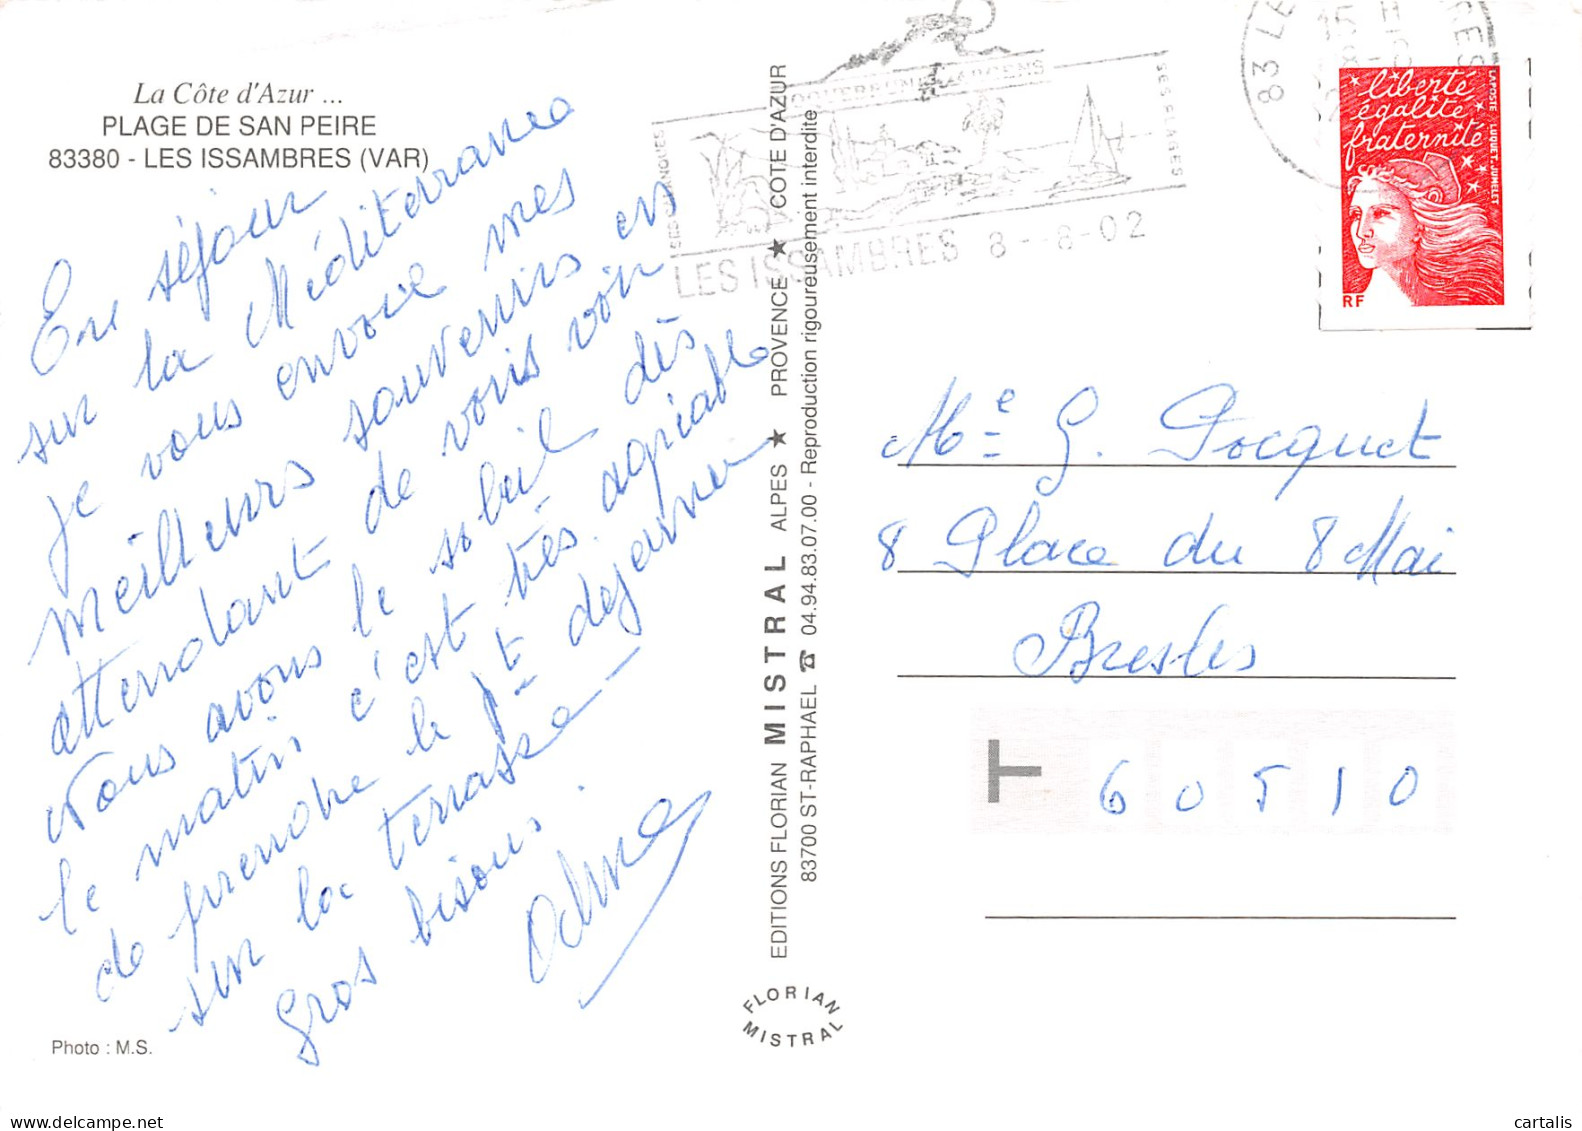 La Côte d'Azur ...
PLAGE DE SAN PEIRE
83380 - LES ISSAMBRES (VAR)
En séjour
sur la Méditerranée
je vous envoie mes
meilleurs souvenirs en
attendant de vous voir
Nous avons le soleil dès
le matin c'est très agréable
de prendre le 1er déjeuner
sur la terrasse
Gros bisous.
Odine
Photo : M.S.
EDITIONS FLORIAN MISTRAL ALPES ★ PROVENCE ★ COTE D'AZUR
83700 ST-RAPHAEL ☎ 04.94.83.07.00 - Reproduction rigoureusement interdite
FLORIAN
MISTRAL
SES CALANQUES
SES PLAGES
LES ISSAMBRES 8--8-02
83 LE
15 H
liberté
égalité
fraternité
LA POSTE LUQUET-JUMELET
RF
Me G. Pocquet
8 Place du 8 Mai
Bresles
60510
cartalis